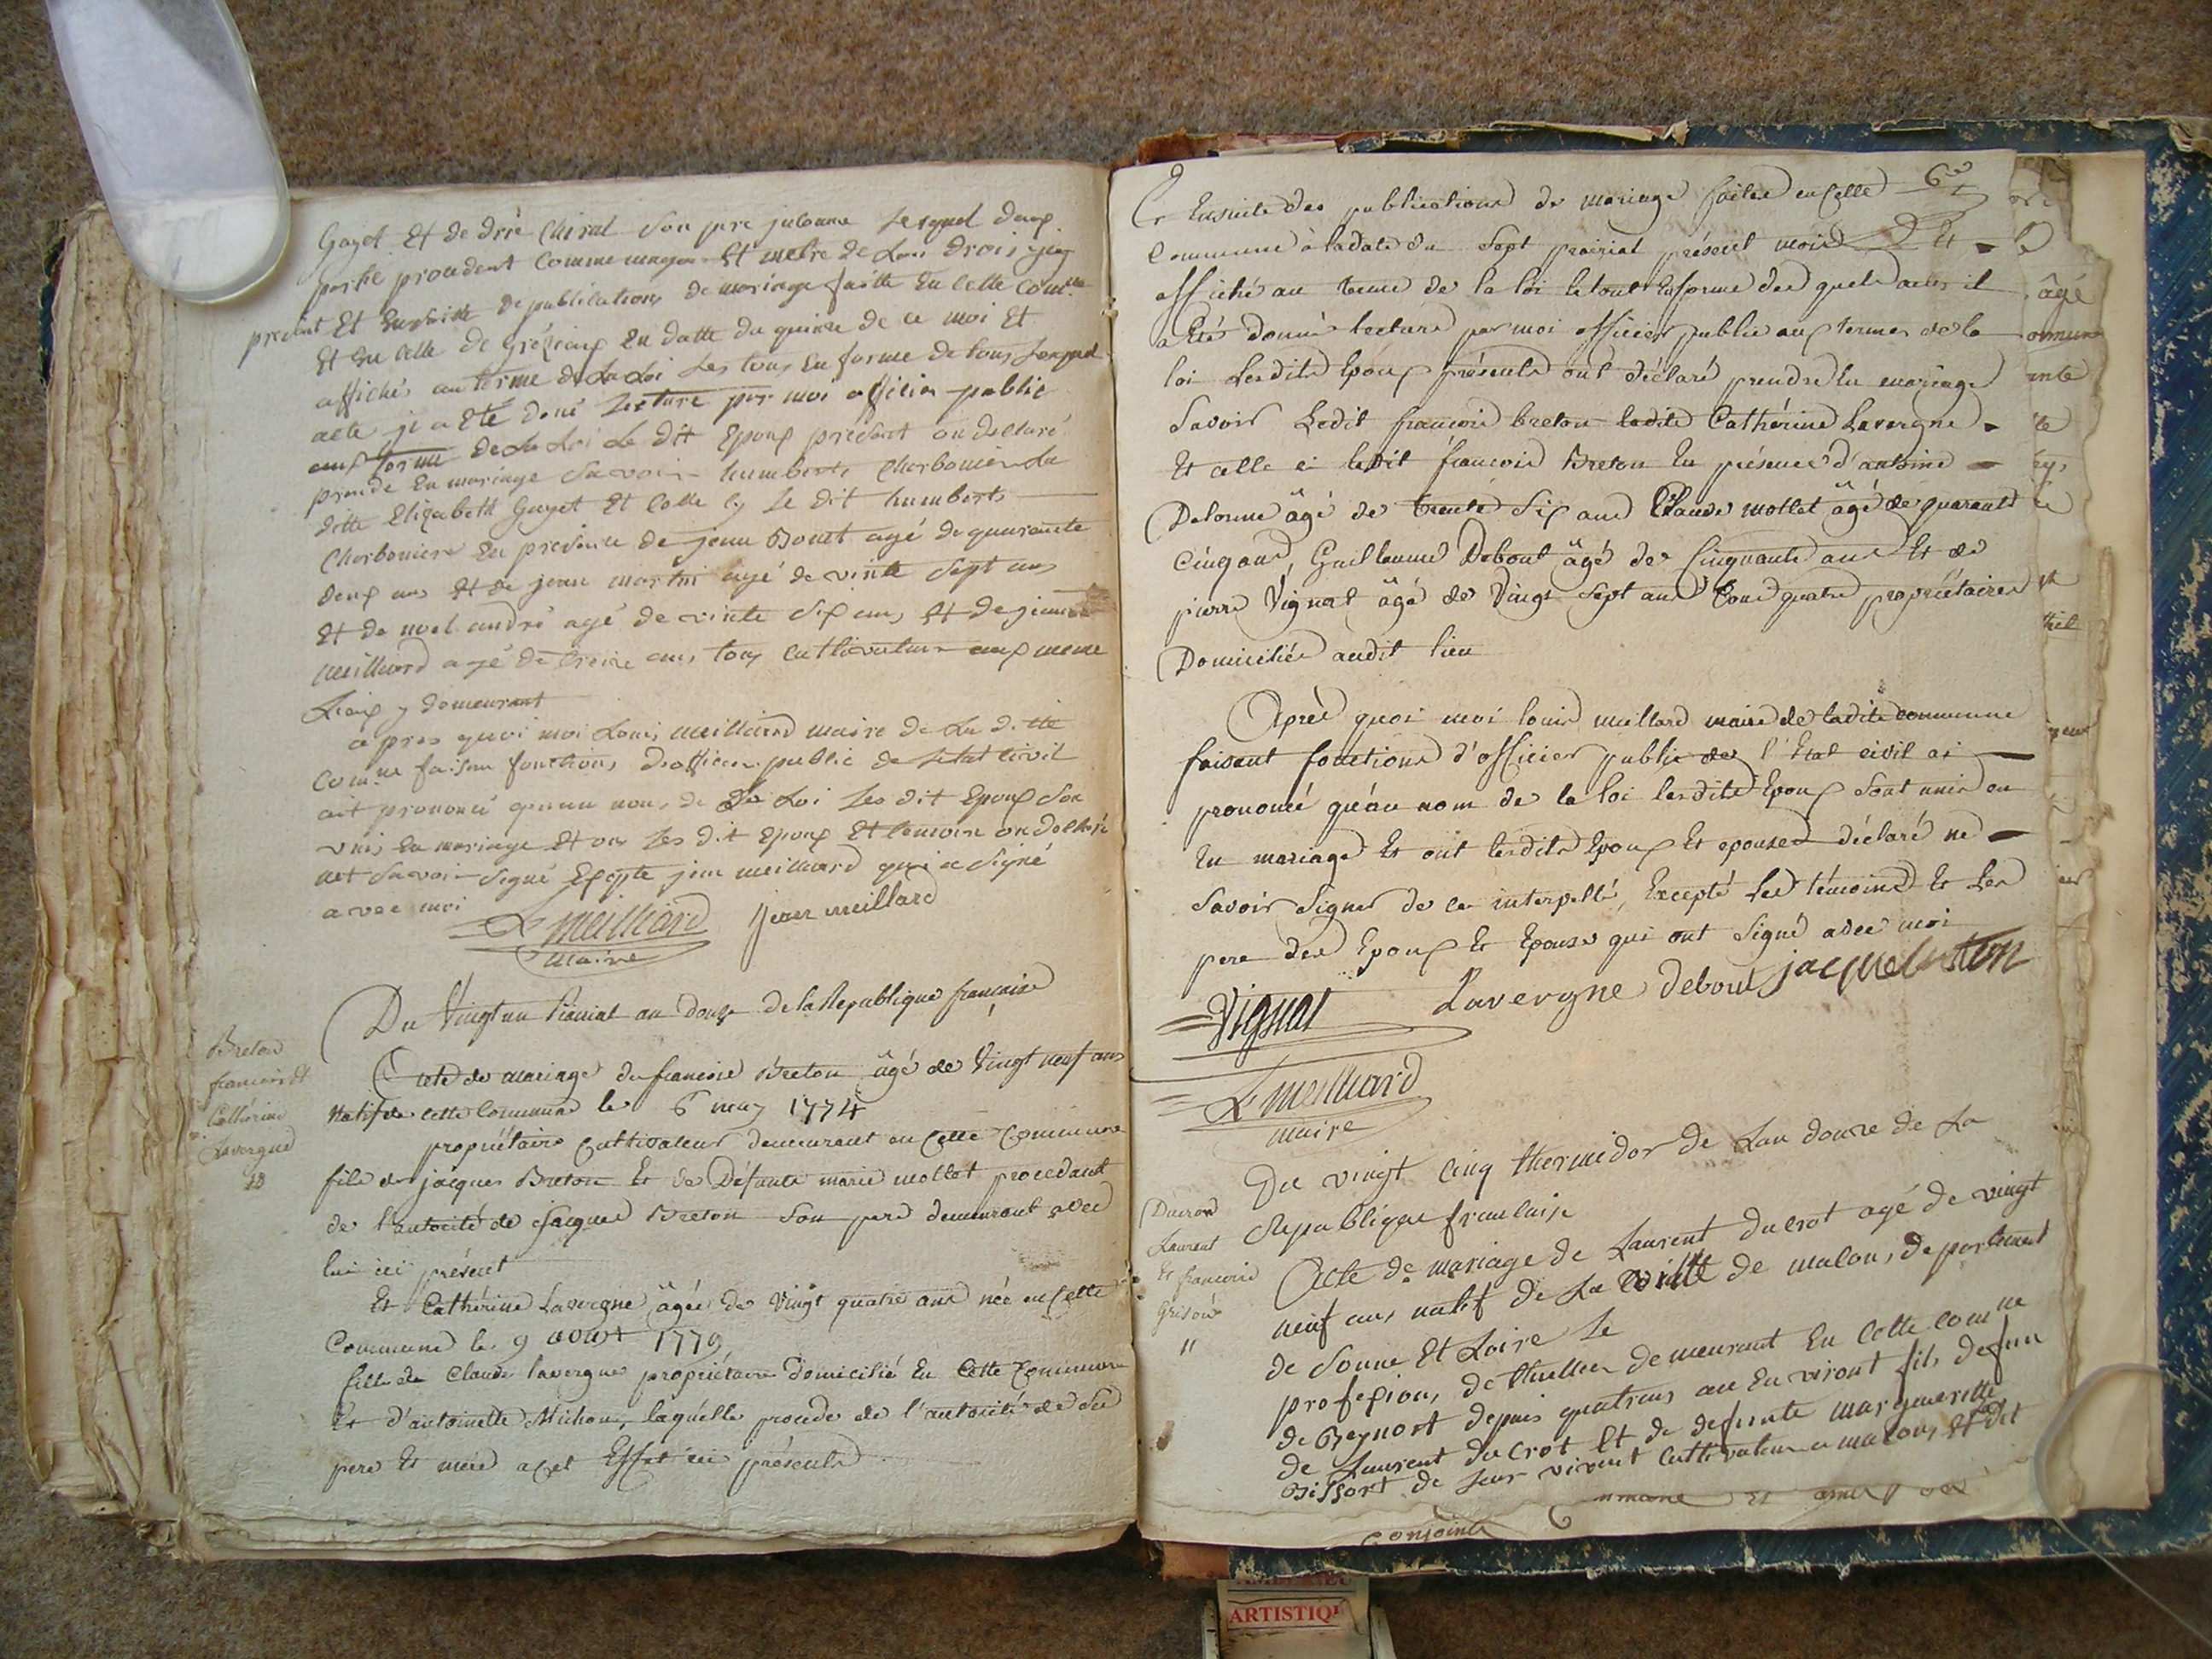 Gayet Et de drié Chirat son pere juloanne lesquel deux
partie procedent comme mageur Et metre de Leurs drois yci
present Et Ensuitte de publications de mariage faitte En cette com.ne
Et En celle de Grézieux En datte du quinze de ce moi Et
affichés au terme de La Loi Les tous En forme de tous Lesquel
acte ji a Eté doné Lecture par moi officier public
aux terme de La Loi Le dit Epoux présent on declaré
prende En mariage savoir humberts Charboniere La
ditte Elizabeth Gayet Et celle cy Le dit humberts
Charboniere En presence de jean Bonet agé de quarante
deux ans Et de jean martin agé de vinte sept ans
Et de noel andré agé de vinte six ans Et de jean
meilliard agé de treize ans tous cultivateur aux meme
Lieux y demeurant
apres quoi moi Louis meilliard maire de La ditte
Com.ne faisan fonctions d'officier public de L'etat civil
ait prononcé quau nons de La Loi Les dit Epoux son
unis En mariage Et ons Les dit Epoux Et temoin on declaré
net savoir signé Excepte jean meilliard qui a signé
avec moi
L meilliard jean meillard
maire
Du Vingt un Prairial an douze de la Republique française
Breton
francois Et
Cathérine
Lavergne
Acte de mariage de francois Breton âgé de Vingt neuf ans
Natif de cette Commune le 6 may 1774
propriétaire Cultivateur demeurant en Cette Commune
fils de jacques Breton Et de Défunte marie mollet procedant
de l'autorité de jacques Breton son pere demeurant avec
lui ici présent
Et Cathérine Lavergne âgée de Vingt quatre ans née en Cette
Commune le 9 aout 1779
fille de Claude lavergne propriétaire domicilié En Cette Commune
Et d'antoinette Michon, laquelle procede de l'autorité de ses
pere Et mere a cet Effet ici présents
6e
Et Ensuite des publications de mariage faites en Celle
Commune à la date du Sept prairial présent mois Et
affiché au terme de la loi le tout En forme des quels actes il
a été donné lecture par moi officier public aux termes de la
loi Lesdits Epoux présents ont déclaré prendre En mariage
Savoir Ledit francois breton ladite Cathérine Lavergne
Et celle ci ledit francois Breton En présence d'antoine
Delorme âgé de trente Six ans Claude mollet âgé de quarante
Cinq ans, Guillaume Debout âgé de Cinquante ans Et de
pierre Vignat âgé de Vingt Sept ans tous quatre propriétaires
Domiciliés audit lieu
Après quoi moi louis meillard maire de ladite commune
faisant fonctions d'officier public de l'Etat civil ai
prononcé qu'au nom de la loi lesdits Epoux Sont unis en
En mariage Et ont lesdits Epoux Et epouses déclaré ne
Savoir Signer de ce interpellé, Excepté Les témoins Et Les
pere des Epoux Et Epouse qui ont Signé avec moi
Vignat Lavergne debout jacque
L meilliard
maire
Du vingt cinq thermidor de Lan douze de La
Republique franlaise
Laurent
Et francoise
Acte de mariage de Laurent ducrot agé de vingt
neuf ans natif de La ville de malou, departement
de Sonne Et Loire Le
profesion, de thuillier demeurant En Cette Com.ne
de Beynost depuis quatrens au En viront fils defun
de Laurent du Crot Et de defunte marguerite
Bissort de leur vivant Cultivateur a malous Et
conjoint
ARTISTIQ